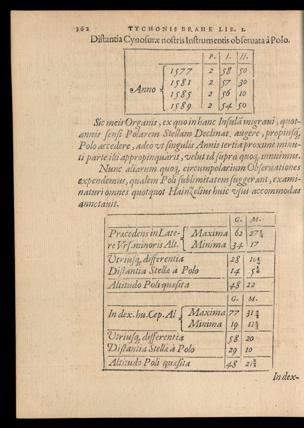 362 TYCHONIS BRAHE LIB. I.
Distantia Cynosuræ nostris Instrumentis obseruata à Polo.
P. I. II.
Anno
1577 2 58 50
1581 2 57 30
1585 2 56 10
1589 2 54 50
Sic meis Organis, ex quo in hanc Insulã migraui, quot-
annis sensi Polarem Stellam Declinat. augere, propiusq;
Polo accedere, adeò vt singulis Annis tertia proximè minu-
ti parte illi appropinquarit, velut id suprà quoq; innuimus.
Nunc aliarum quoq; circumpolarium Obseruationes
expendemus, qualem Poli sublimitatem suggerant, exami-
naturi omnes quotquot Hainzelius huic vsui accommodas
annotauit.
G. M.
Præcedens in Late- Maxima 62 27¼
re Vrsæ minoris Alt. Minima 34 17
Vtriusq; differentia 28
Distantia Stellæ à Polo 14
Altitudo Poli quæsita 48 22
G. M.
In dex. hu. Cap. Al. Maxima 77
Minima 19
Vtriusq; differentia 58 20
Distantia Stellæ à Polo 29 10
Altitudo Poli quæsita 48
In dex-